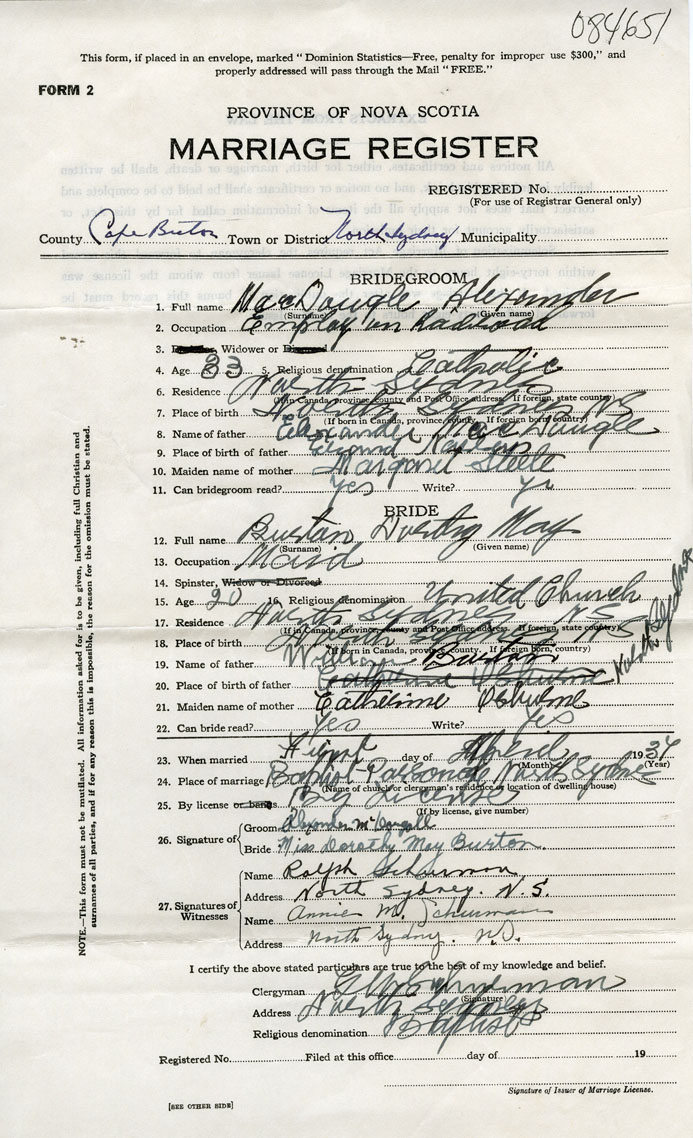 084651
This form, if placed in an envelope, marked "Dominion Statistics—Free, penalty for improper use $300," and
properly addressed will pass through the Mail "FREE."
FORM 2
PROVINCE OF NOVA SCOTIA
MARRIAGE REGISTER
REGISTERED No.
(For use of Registrar General only)
County Cape Breton Town or District North Sydney Municipality
BRIDEGROOM
1. Full name MacDougle Alexander
(Surname) (Given name)
2. Occupation Employ on Railroad
3. Widower or
4. Age 23 5. Religious denomination Catholic
6. Residence North Sydney
(If in Canada, province, county and Post Office address. If foreign, state country)
7. Place of birth North Sydney NS
(If born in Canada, province, county. If foreign born, country)
8. Name of father Alexander MacDougle
9. Place of birth of father
10. Maiden name of mother Margaret Steele
11. Can bridegroom read? Yes Write? Yes
BRIDE
12. Full name Burton Dorothy May
(Surname) (Given name)
13. Occupation Maid
14. Spinster, Widow or Divorced
15. Age 20 16. Religious denomination United Church
17. Residence North Sydney N.S.
(If in Canada, province, county and Post Office address. If foreign, state country)
18. Place of birth North Sydney N.S
(If born in Canada, province, county. If foreign born, country)
19. Name of father William Burton
20. Place of birth of father North Sydney
21. Maiden name of mother Catherine
22. Can bride read? Yes Write? Yes
23. When married First day of April 1934
(Month) (Year)
24. Place of marriage Baptist Parsonage North Sydney
(Name of church or clergyman's residence or location of dwelling house)
25. By license or banns By License
(If by license, give number)
26. Signature of Groom Alexander McDougall
Bride Miss Dorothy May Burton.
27. Signatures of Witnesses
Name Ralph Schurman
Address North Sydney. N.S.
Name Annie M. Schurman
Address North Sydney. N.S.
I certify the above stated particulars are true to the best of my knowledge and belief.
Clergyman Schurman
(Signature)
Address North Sydney
Religious denomination Baptist
Registered No. Filed at this office day of 19
Signature of Issuer of Marriage License.
[SEE OTHER SIDE]
NOTE.—This form must not be mutilated. All information asked for is to be given, including full Christian and
surnames of all parties, and if for any reason this is impossible, the reason for the omission must be stated.